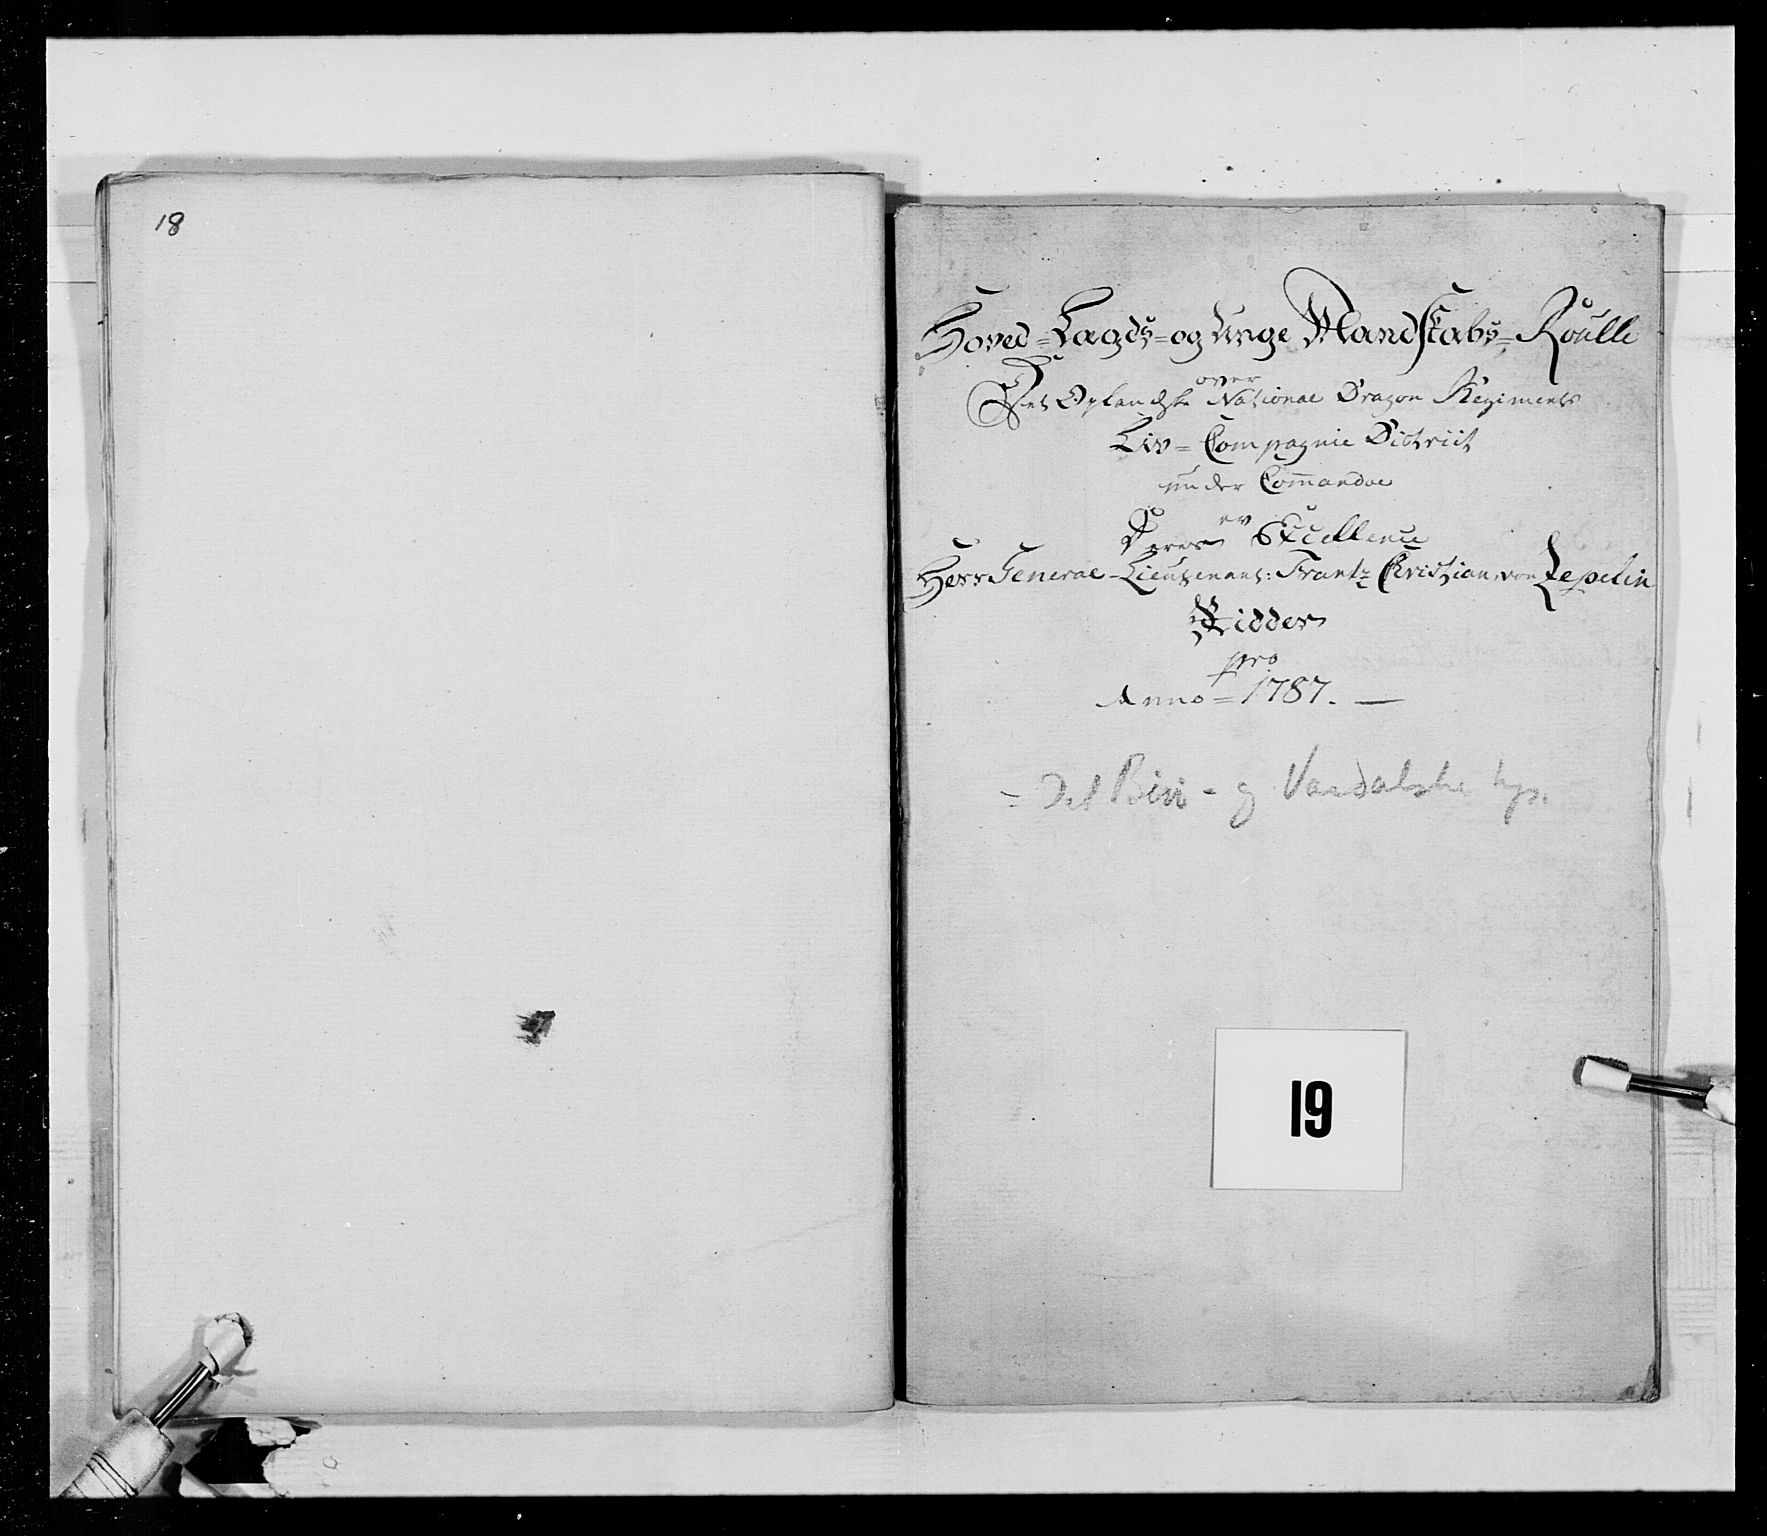 18
Hoved-Lægds-og Unge Mandskabs-Roulle
over
Det Oplandske National Dragon Regiments
Liv-Compagnie District
under Commandoe
ev
Deres Excellence
Herr General-Lieutenant: Frantz Christian von Zepelin
Ridder
pro
Anno=1787. —
= Det Biri- og Vardalske kp.
19